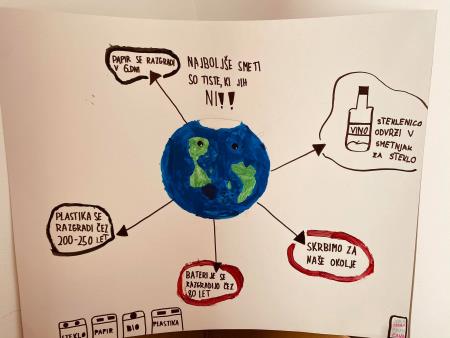 PAPIR SE RAZGRADI
V 6.DNI
NAJBOLJŠE SMETI
SO TISTE, KI JIH
NI!!
VINO
STEKLENICO
ODVRZI V
SMETNJAK
ZA STEKLO
PLASTIKA SE
RAZGRADI ČEZ
200-250 LET
BATERIJE SE
RAZGRADIJO ČEZ
80 LET
SKRBIMO ZA
NAŠE OKOLJE
STEKLO
PAPIR
BIO
PLASTIKA